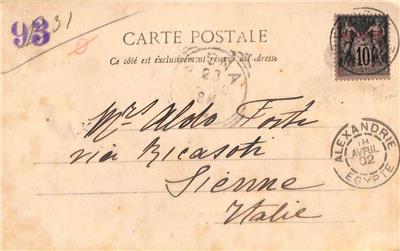 93
31
CARTE POSTALE
Ce côté est exclusivement réservé à l'adresse
10
Mrs Aldo Forti
via Ricasoli
Sienne
Italie
ALEXANDRIE
18
AVRIL
02
EGYPTE
23